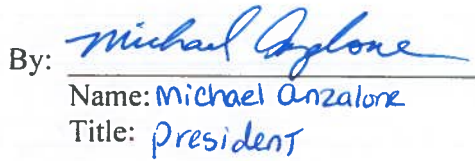 By: Michael Anzalone
Name: Michael Anzalone
Title: President